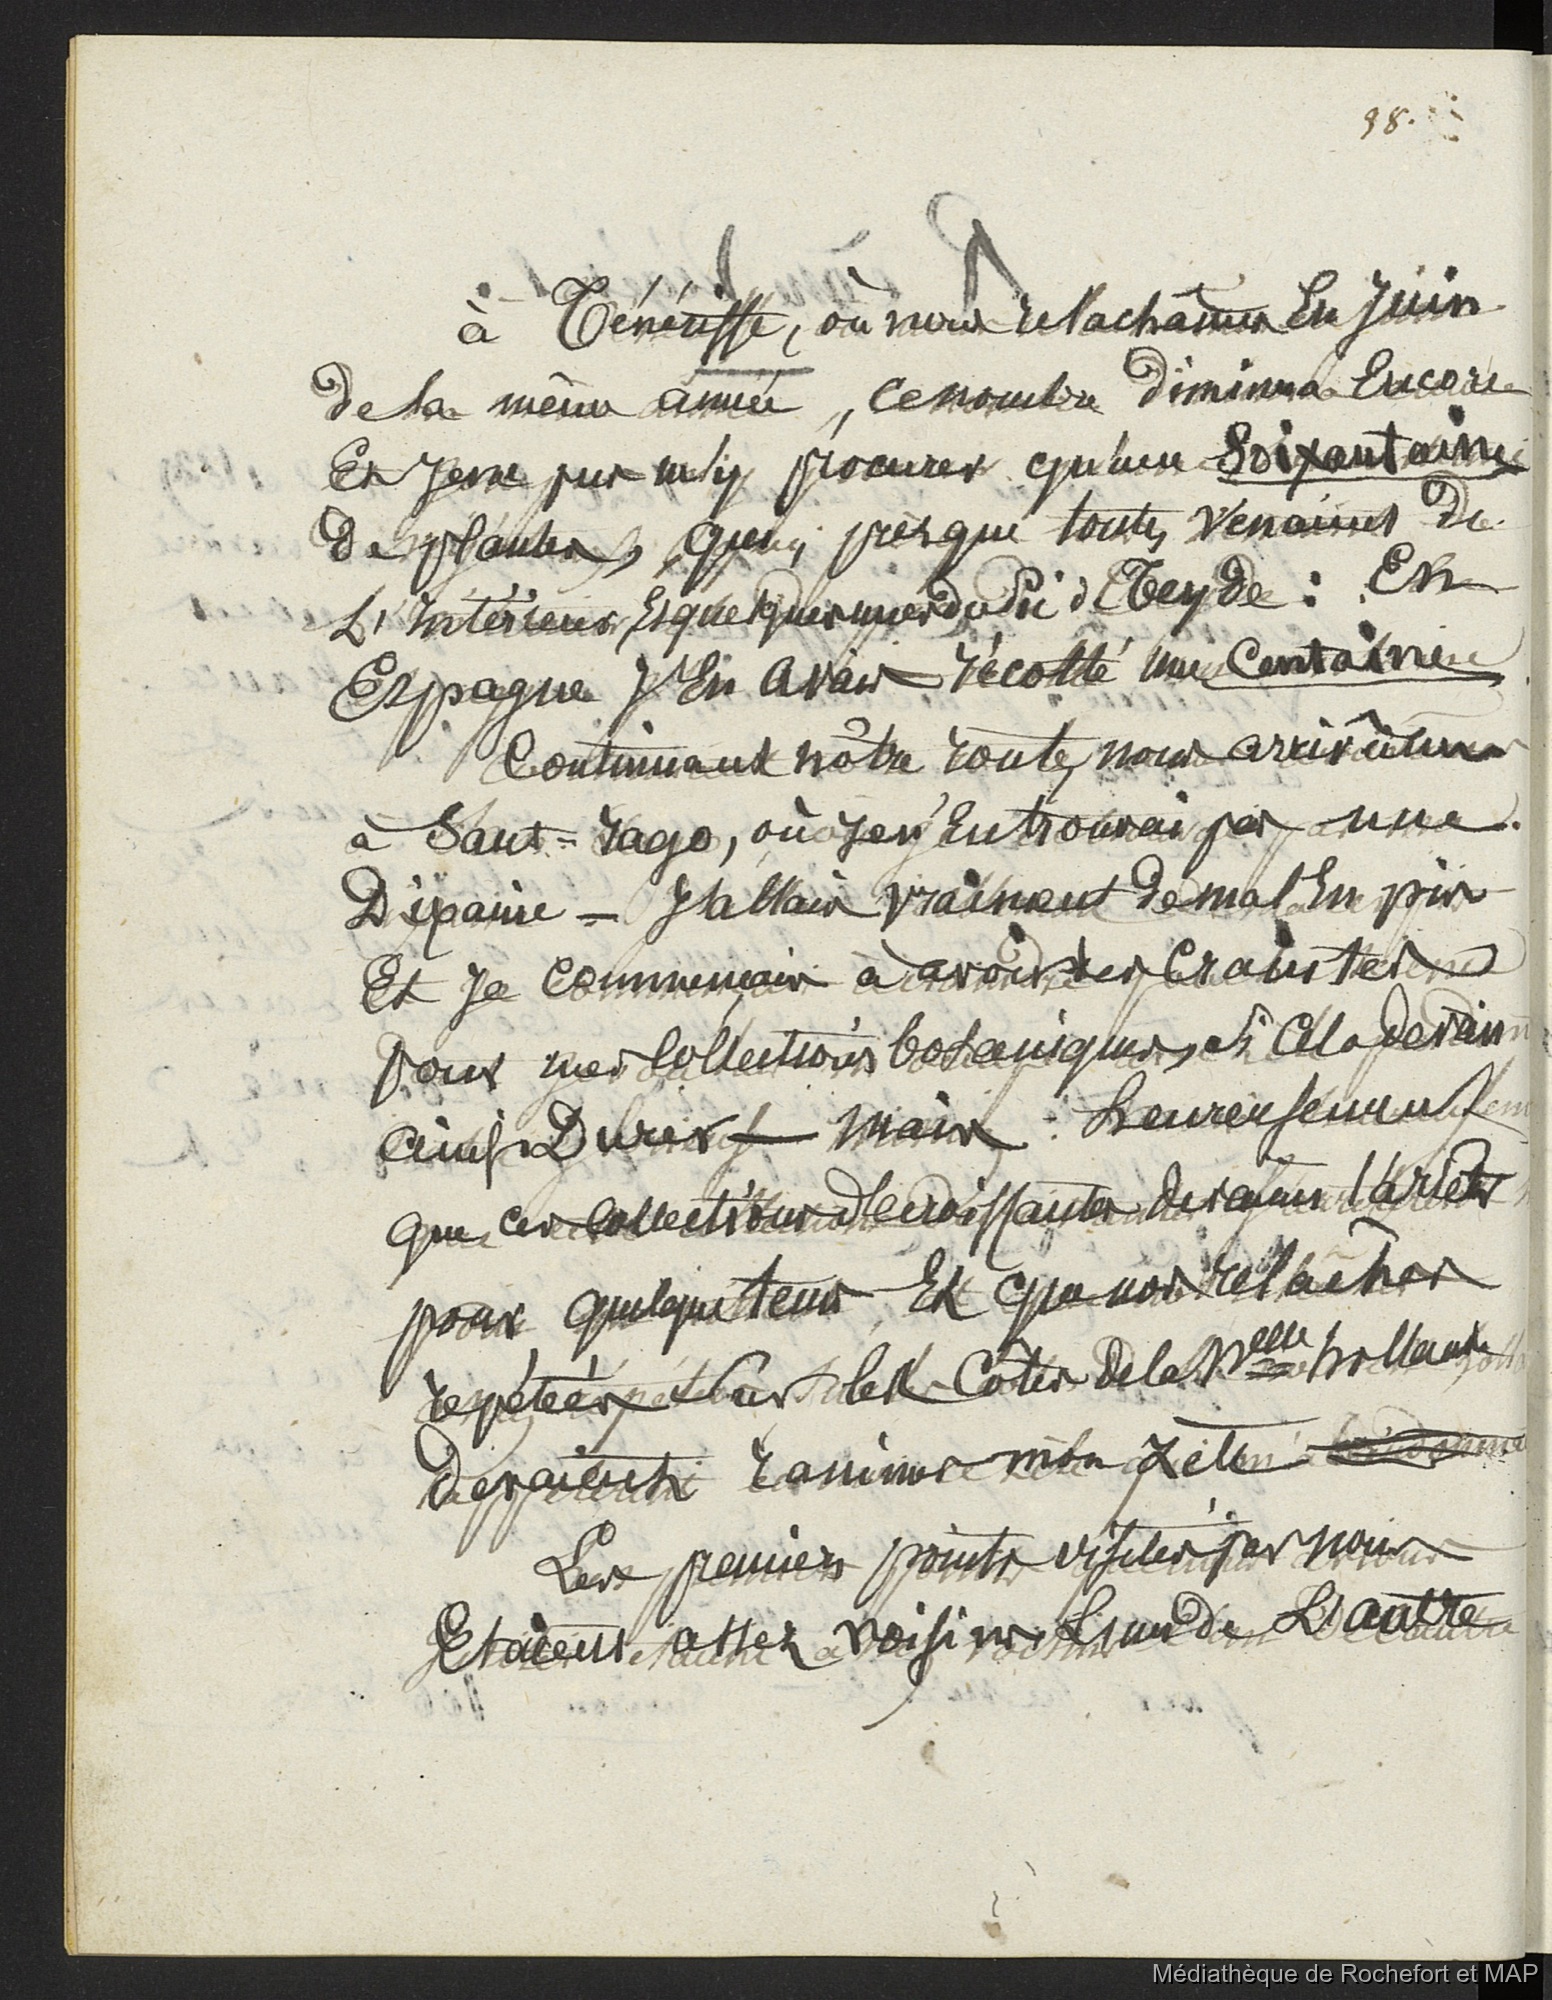 98.
à Ténériffe, où nous relachâmes En Juin
de la même année, ce nombre diminua Encore
Et Je ne pus m'y procurer qu'une Soixantaine
de plantes, presque toutes venaient de
L'Intérieur, Et quelques unes du Pic d Teyde : En
Espagne J'En avais récolté une Centaine
Continuant nôtre route, nous arrivâmes
à Sant-Iago, où Je n'En trouvai pas une
Dixaine = J'allais vraiment de mal En pis
Et Je commençais à avoir des craintes
pour mes collections botaniques, si Cela devait
ainsi Durer — mais : heureusement
que ces collections décroissantes devaient s'arrêter
pour quelque tems Et que nos relâches
repétées sur les Côtes de la Nelle hollande
devaient ranimer mon zèle
Les premiers points visités par nous
Etaient assez voisins L'un de L'autre
Médiathèque de Rochefort et MAP